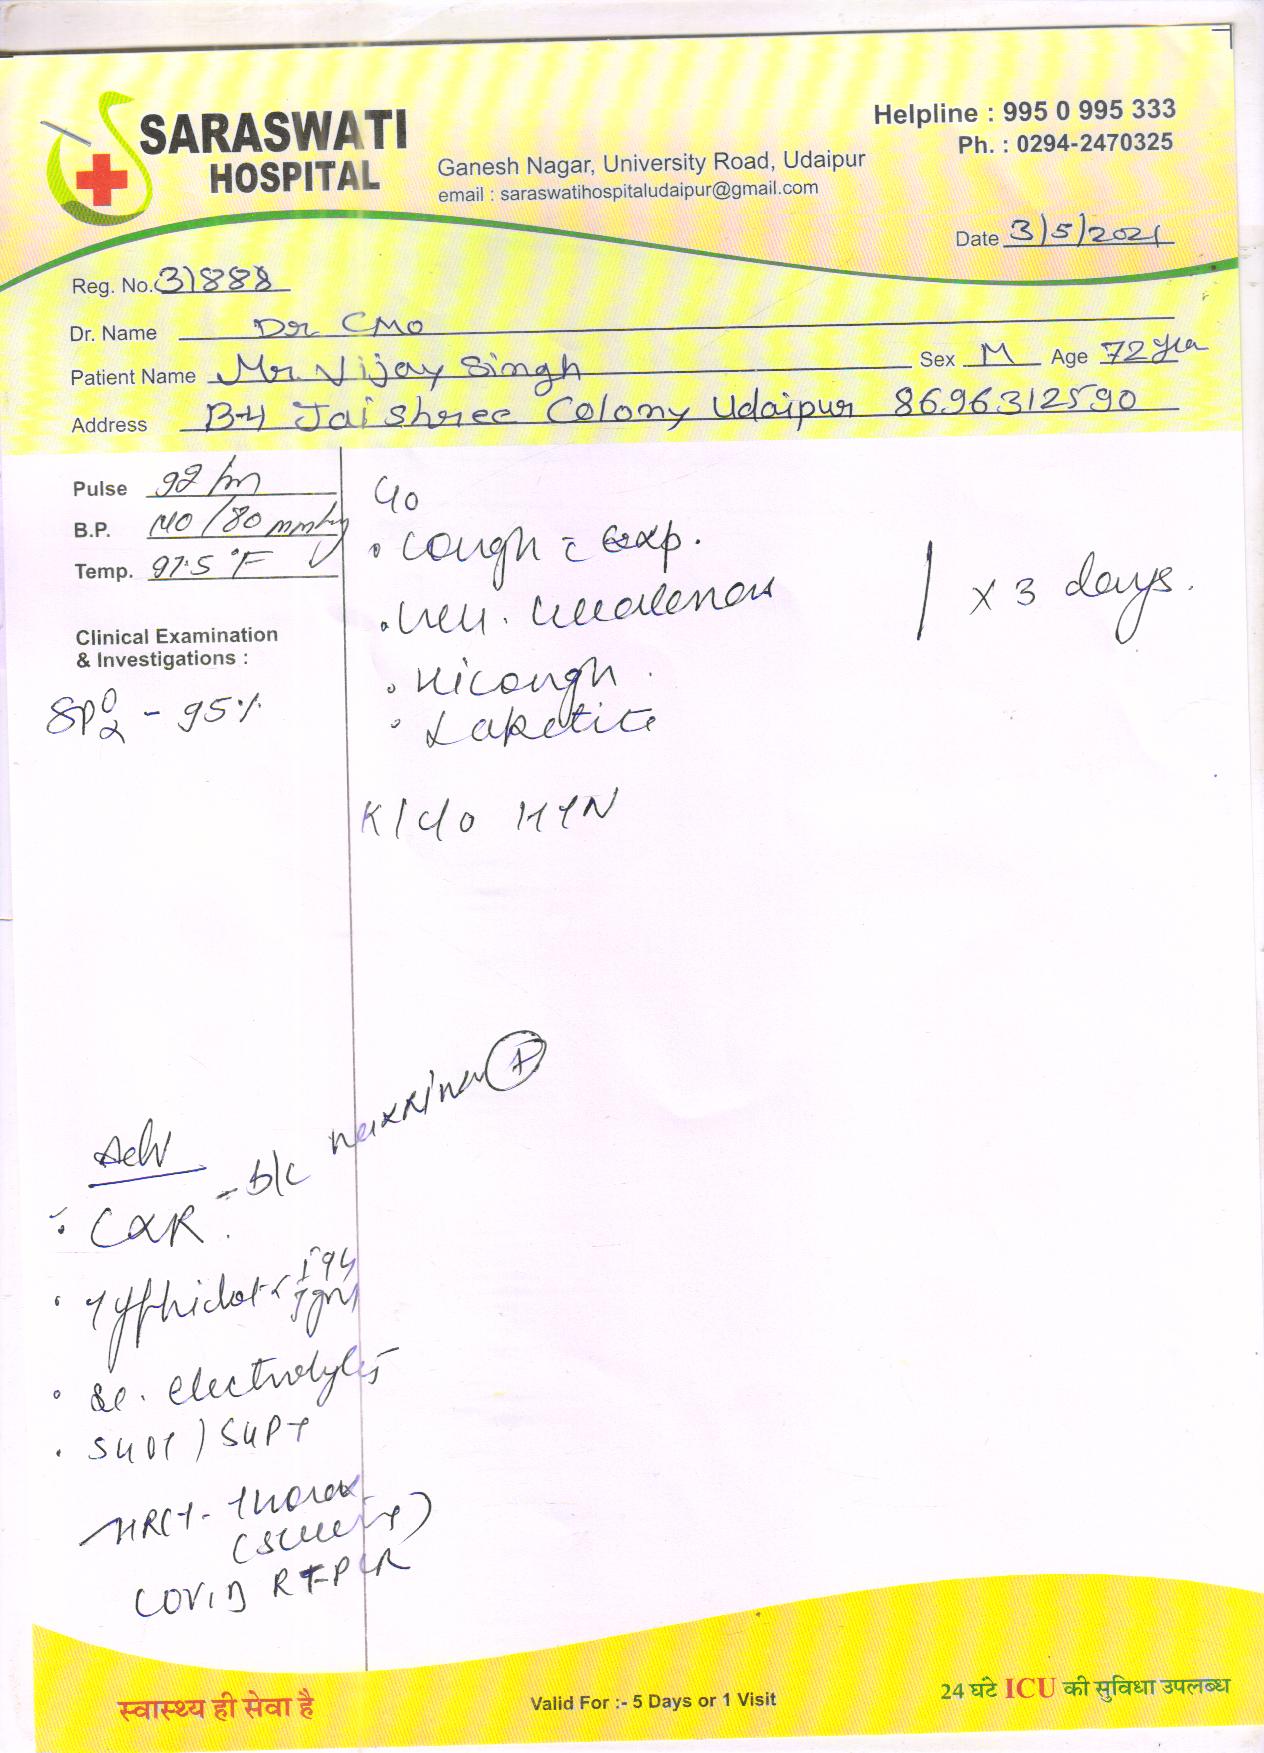 SARASWATI
HOSPITAL
Ganesh Nagar, University Road, Udaipur
email : saraswatihospitaludaipur@gmail.com
Helpline : 995 0 995 333
Ph. : 0294-2470325
Date 3/5/2021
Reg. No. 31888
Dr. Name Dr CMO
Patient Name Mr. Vijay Singh Sex M Age 72 yrs
Address B-4 Jai Shree Colony Udaipur 8696312590
Pulse 92/m
B.P. 140/80 mmHg
Temp. 97.5 °F
Clinical Examination
& Investigations :
SPO2 - 95%
C/o
• Cough c exp.
• Gen. Weakness
• Hicough.
• ↓ appetite
x 3 days.
K/C/o HTN
Adv
- b/c
• CXR.
• Typhidot < IgG
IgM
• Se. electrolytes
• SGOT / SGPT
HRCT - thorax
COVID RTPCR
स्वास्थ्य ही सेवा है
Valid For :- 5 Days or 1 Visit
24 घंटे ICU की सुविधा उपलब्ध